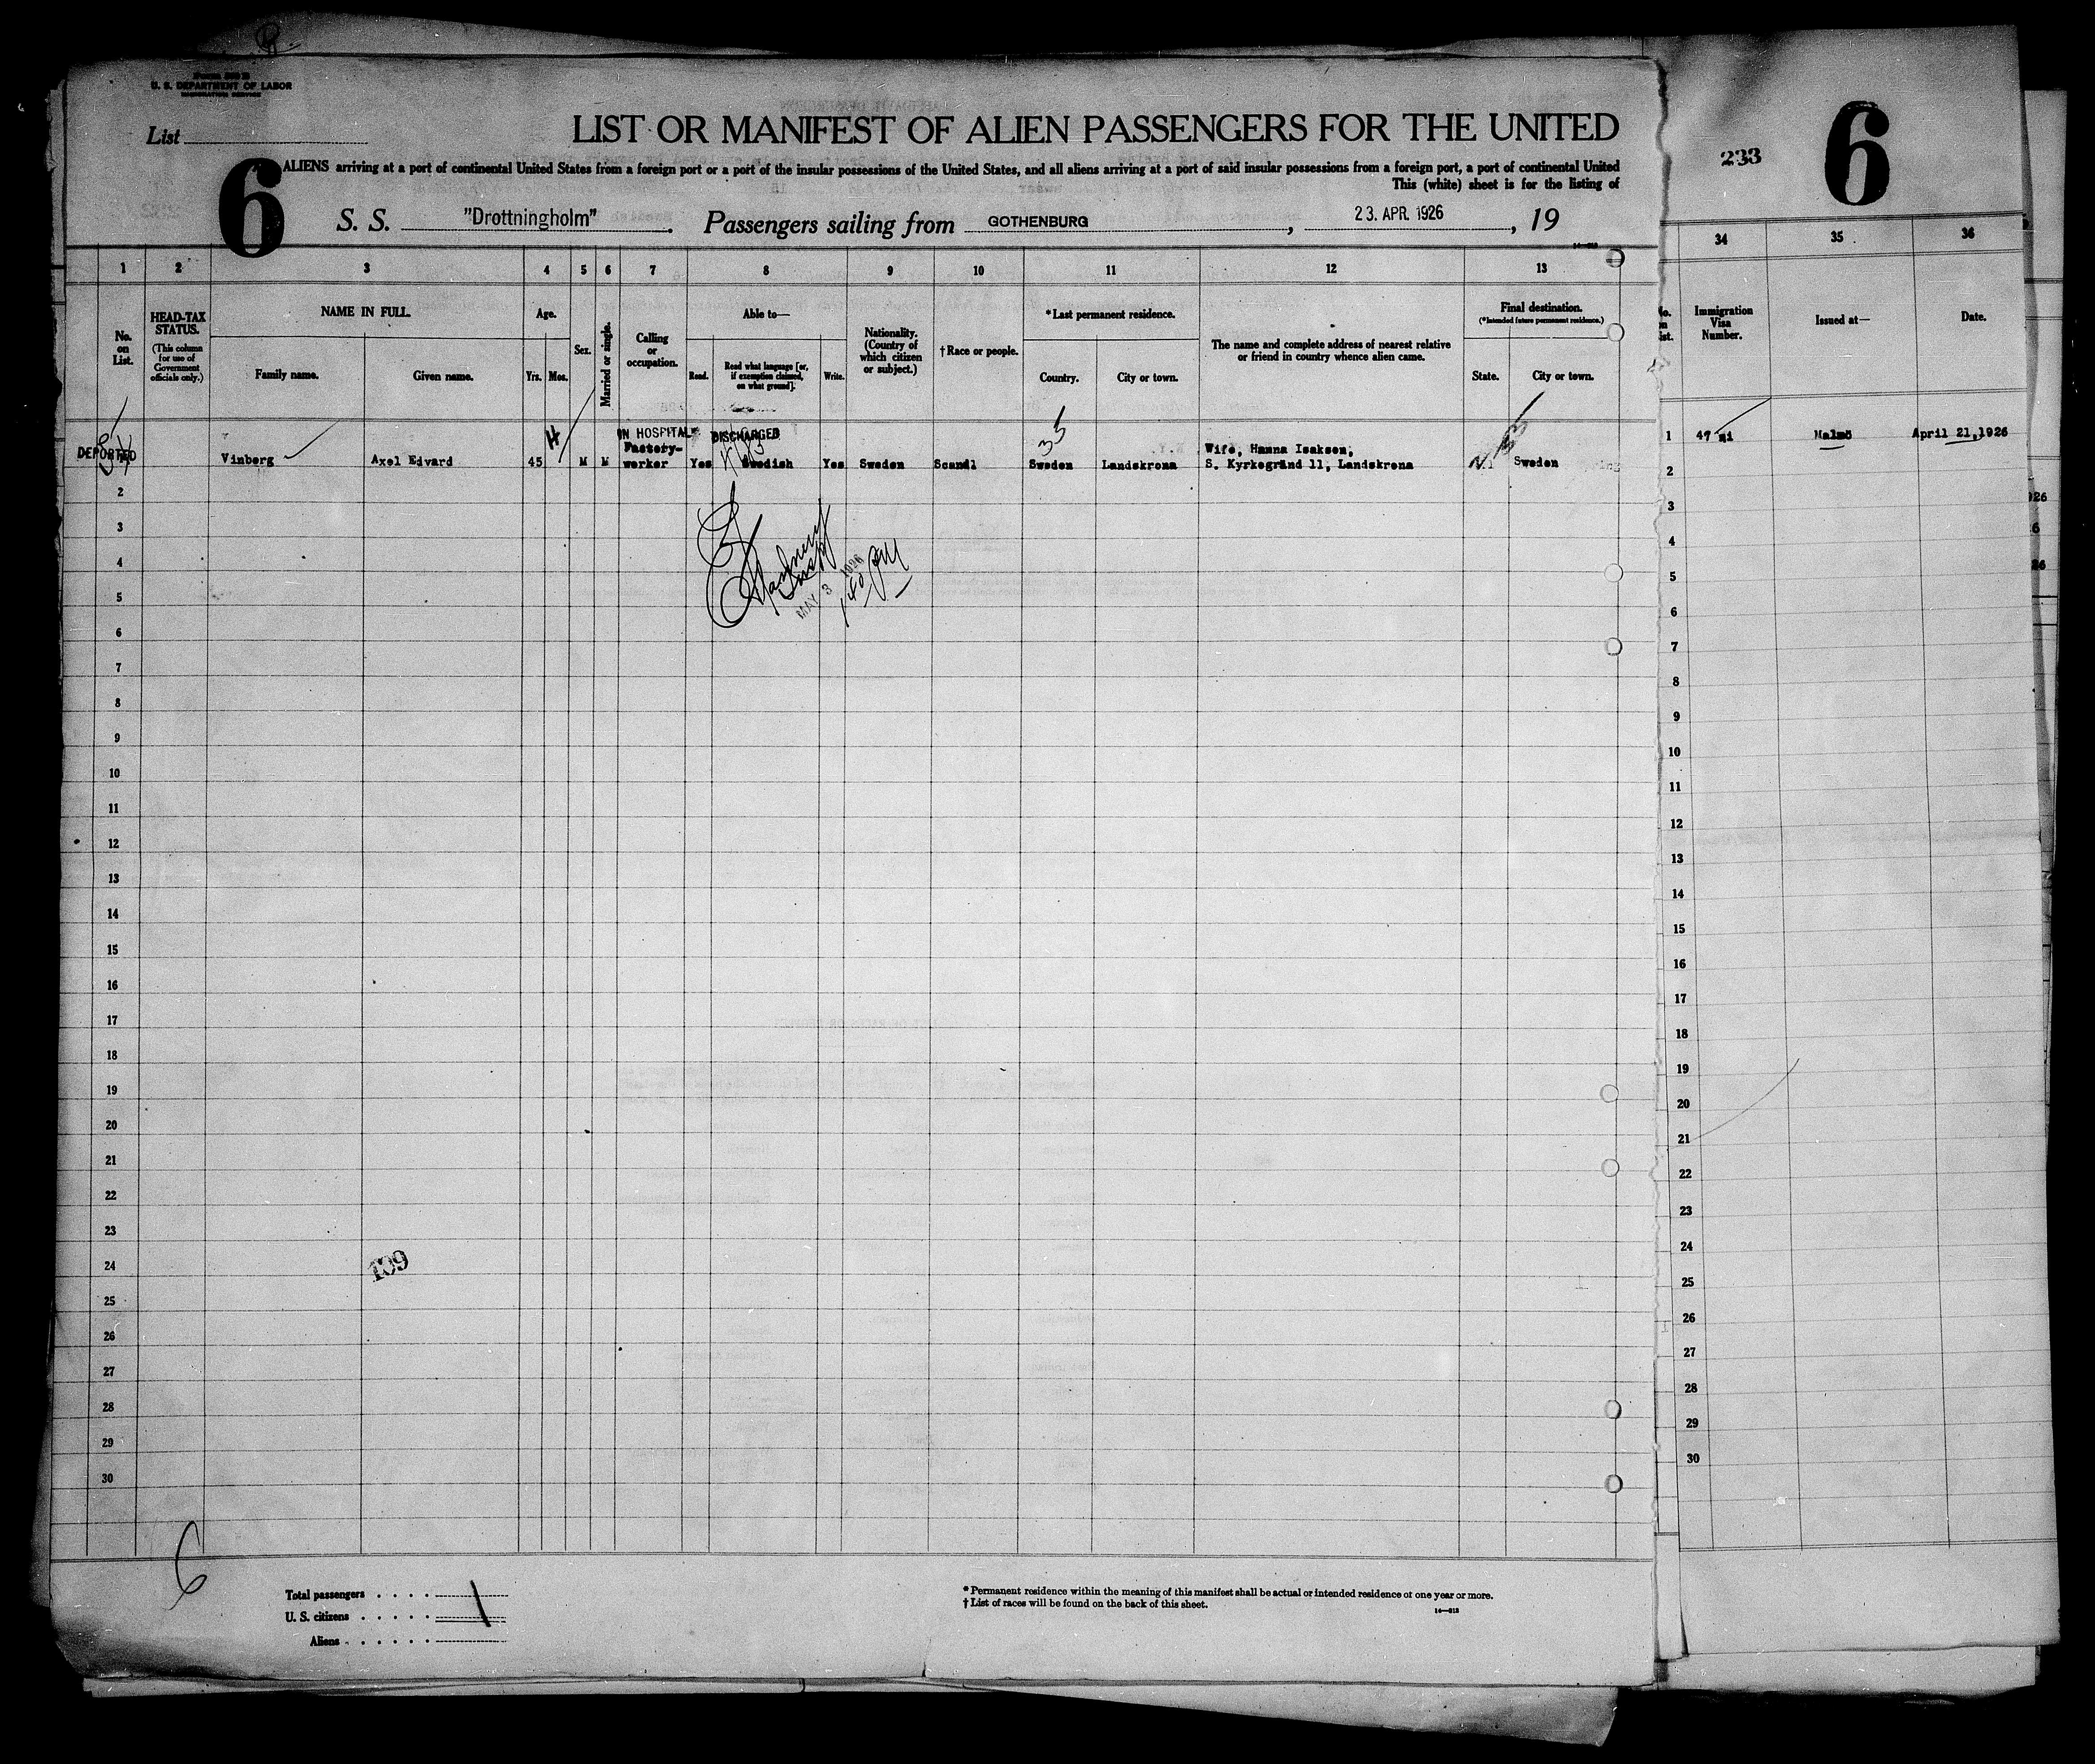 U. S. DEPARTMENT OF LABOR
IMMIGRATION SERVICE
List
6
LIST OR MANIFEST OF ALIEN PASSENGERS FOR THE UNITED
ALIENS arriving at a port of continental United States from a foreign port or a port of the insular possessions of the United States, and all aliens arriving at a port of said insular possessions from a foreign port, a port of continental United
This (white) sheet is for the listing of
S. S. "Drottningholm". Passengers sailing from GOTHENBURG, 23. APR. 1926, 19
233 6
1 2 3 4 5 6 7 8 9 10 11 12 13
34 35 36
No. on List.
HEAD-TAX STATUS.
(This column for use of Government officials only.)
NAME IN FULL.
Family name. Given name.
Age.
Yrs. Mos.
Sex.
Married or single.
Calling or occupation.
Able to—
Read. Read what language [or, if exemption claimed, on what ground]. Write.
Nationality. (Country of which citizen or subject.)
†Race or people.
*Last permanent residence.
Country. City or town.
The name and complete address of nearest relative or friend in country whence alien came.
Final destination.
(*Intended future permanent residence.)
State. City or town.
Immigration Visa Number.
Issued at—
Date.
DEPORTED
IN HOSPITAL DISCHARGED
Vinberg Axel Edvard 45 M M Factory-worker Yes Swedish Yes Sweden Scand. Sweden Landskrona Wife, Hanna Isakson,
S. Kyrkogränd 11, Landskrona
Sweden
33
1 47 Malmö April 21, 1926
MAY 3 1926
2
3
4
5
6
7
8
9
10
11
12
13
14
15
16
17
18
19
20
21
22
23
24
25
26
27
28
29
30
2
3
4
5
6
7
8
9
10
11
12
13
14
15
16
17
18
19
20
21
22
23
24
25
26
27
28
29
30
109
6
Total passengers
U. S. citizens
Aliens
1
* Permanent residence within the meaning of this manifest shall be actual or intended residence of one year or more.
† List of races will be found on the back of this sheet.